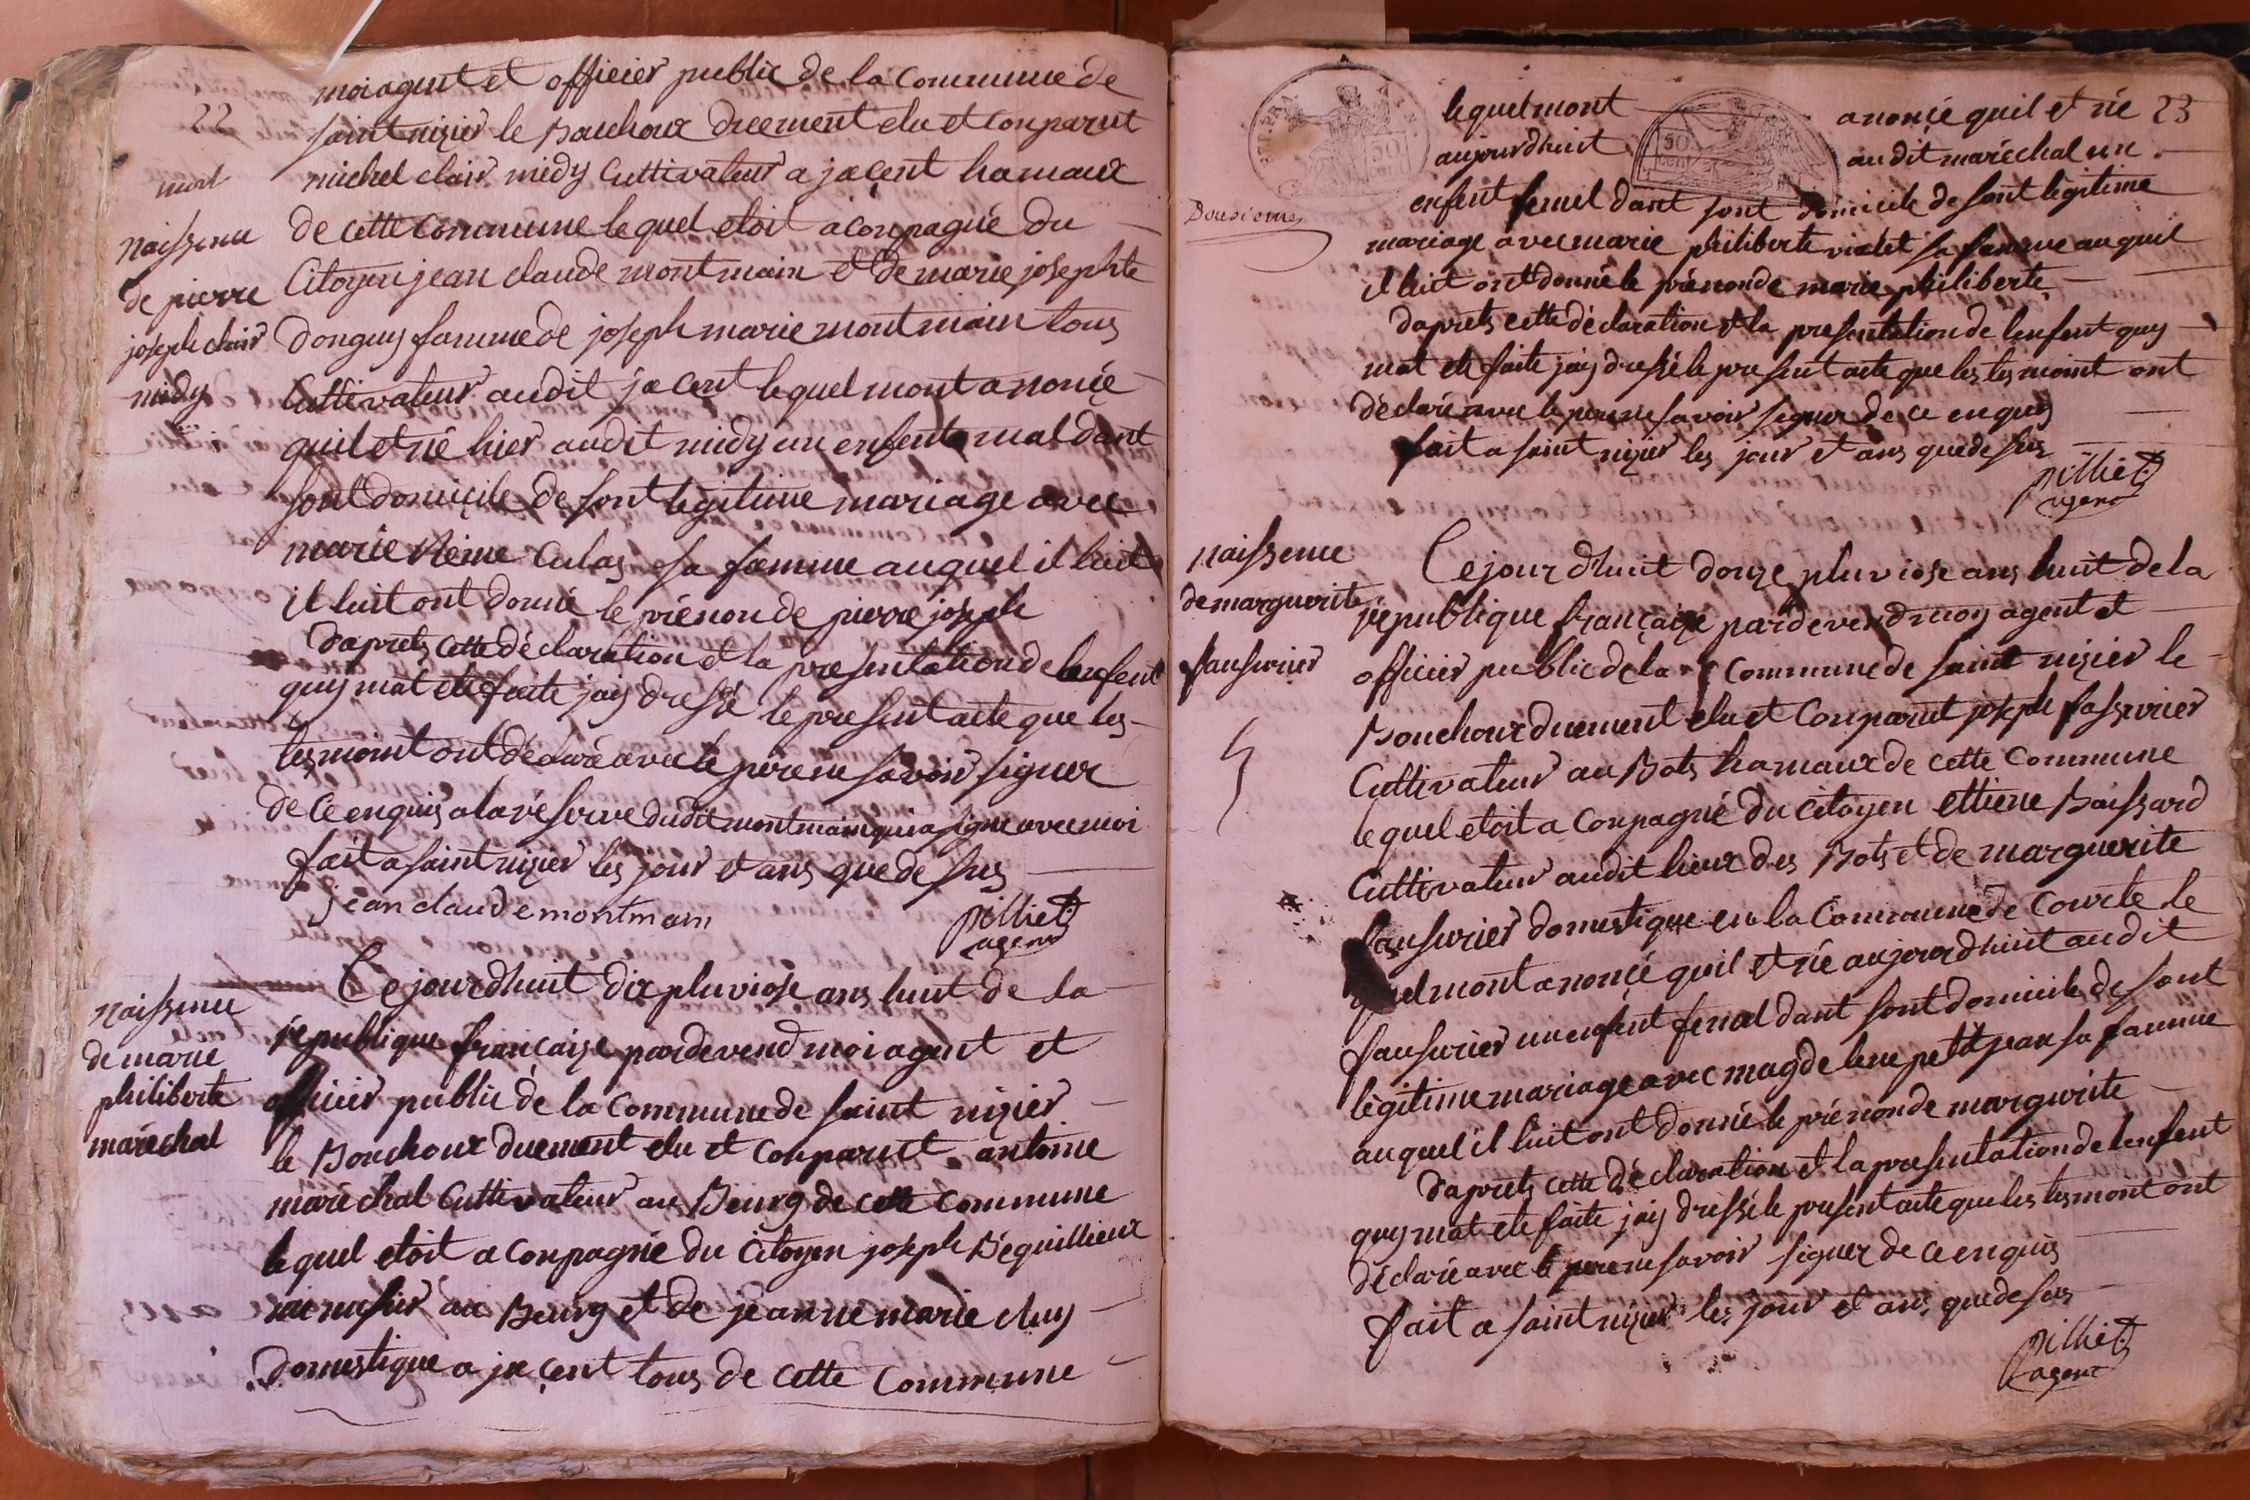 22
moi agent et officier public de la commune de
saint nizier le Bouchoux duement elu et Conparut
michel clair midy Cultivateur a jacent hamaux
de cette Commune lequel etoit aconpagné du
Citoyen jean claude montmain et de marie josephte
donguy famme de joseph marie montmain tous
Cultivateur audit jacent lequel mont anoncé
quil et né hier audit midy un enfent mal dant
sont domicile de sont légitime mariage avec
marie Reine Culas sa famme auquel il luit
il luit ont donné le prénon de pierre joseph
daprets cette déclaration et la presentation de lenfent
quy mat eté faite jaij dressé le present acte que les
tesmoint ont déclaré avec le pere ne savoir signer
de ce enquis a la réserve dudit montmain qui a signe avec moi
fait a saint nizier les jour et ans que de sus
jean claude montmain
pilliet
agent
mort
naissence
de pierre
joseph clair
midy
naissence
de marie
philiberte
maréchal
Ce jourdhuit dix pluviose ans huit de la
république françaize pardevend moi agent et
officier public de la commune de saint nizier
le Bouchoux duement elu et Conparut antoine
maréchal Cultivateur au Bourg de cette commune
lequel etoit aconpagné du Citoyen joseph Béguillieux
au Bourg et de jeanne marie cluy
domestique a jacent tous de cette Commune
23
50
50
lequel mont anoncé quil et né
aujourdhuit audit maréchal un
enfent femel dant sont domicile de sont légitime
mariage avec marie philiberte violet sa famme auquil
il luit ont donné le prénon de marie philiberte
daprets cette déclaration et la presentation de lenfent quy
mat eté faite jaij dressé le present acte que les tesmoint ont
déclaré avec le pere ne savoir signer de ce enquis
fait a saint nizier les jour et ans que de sus
pilliet
agent
naissence
de margurite
fausurier
Ce jour dhuit douze pluviose ans huit de la
république françaize pardevend moy agent et
officier public de la commune de saint nizier le
Bouchoux duement elu et Conparut joseph fassurier
Cultivateur au Bots hamaux de cette commune
lequel etoit aconpagné du Citoyen ettiene Baissard
Cultivateur audit lieux des Bots et de marguerite
fausurier domestique en la Commune de Courte le
quel mont anoncé quil et né aujourdhuit audit
fausurier un enfent femel dant sont domicile de sont
légitime mariage avec magdelene petit jean sa famme
auquel il luit ont donné le prénon de margurite
daprets cette déclaration et la presentation de lenfent
quy mat eté faite jaij dressé le present acte que les tesmoint ont
déclaré avec le pere ne savoir signer de ce enquis
fait a saint nizier les jour et ans que de sus
pilliet
agent